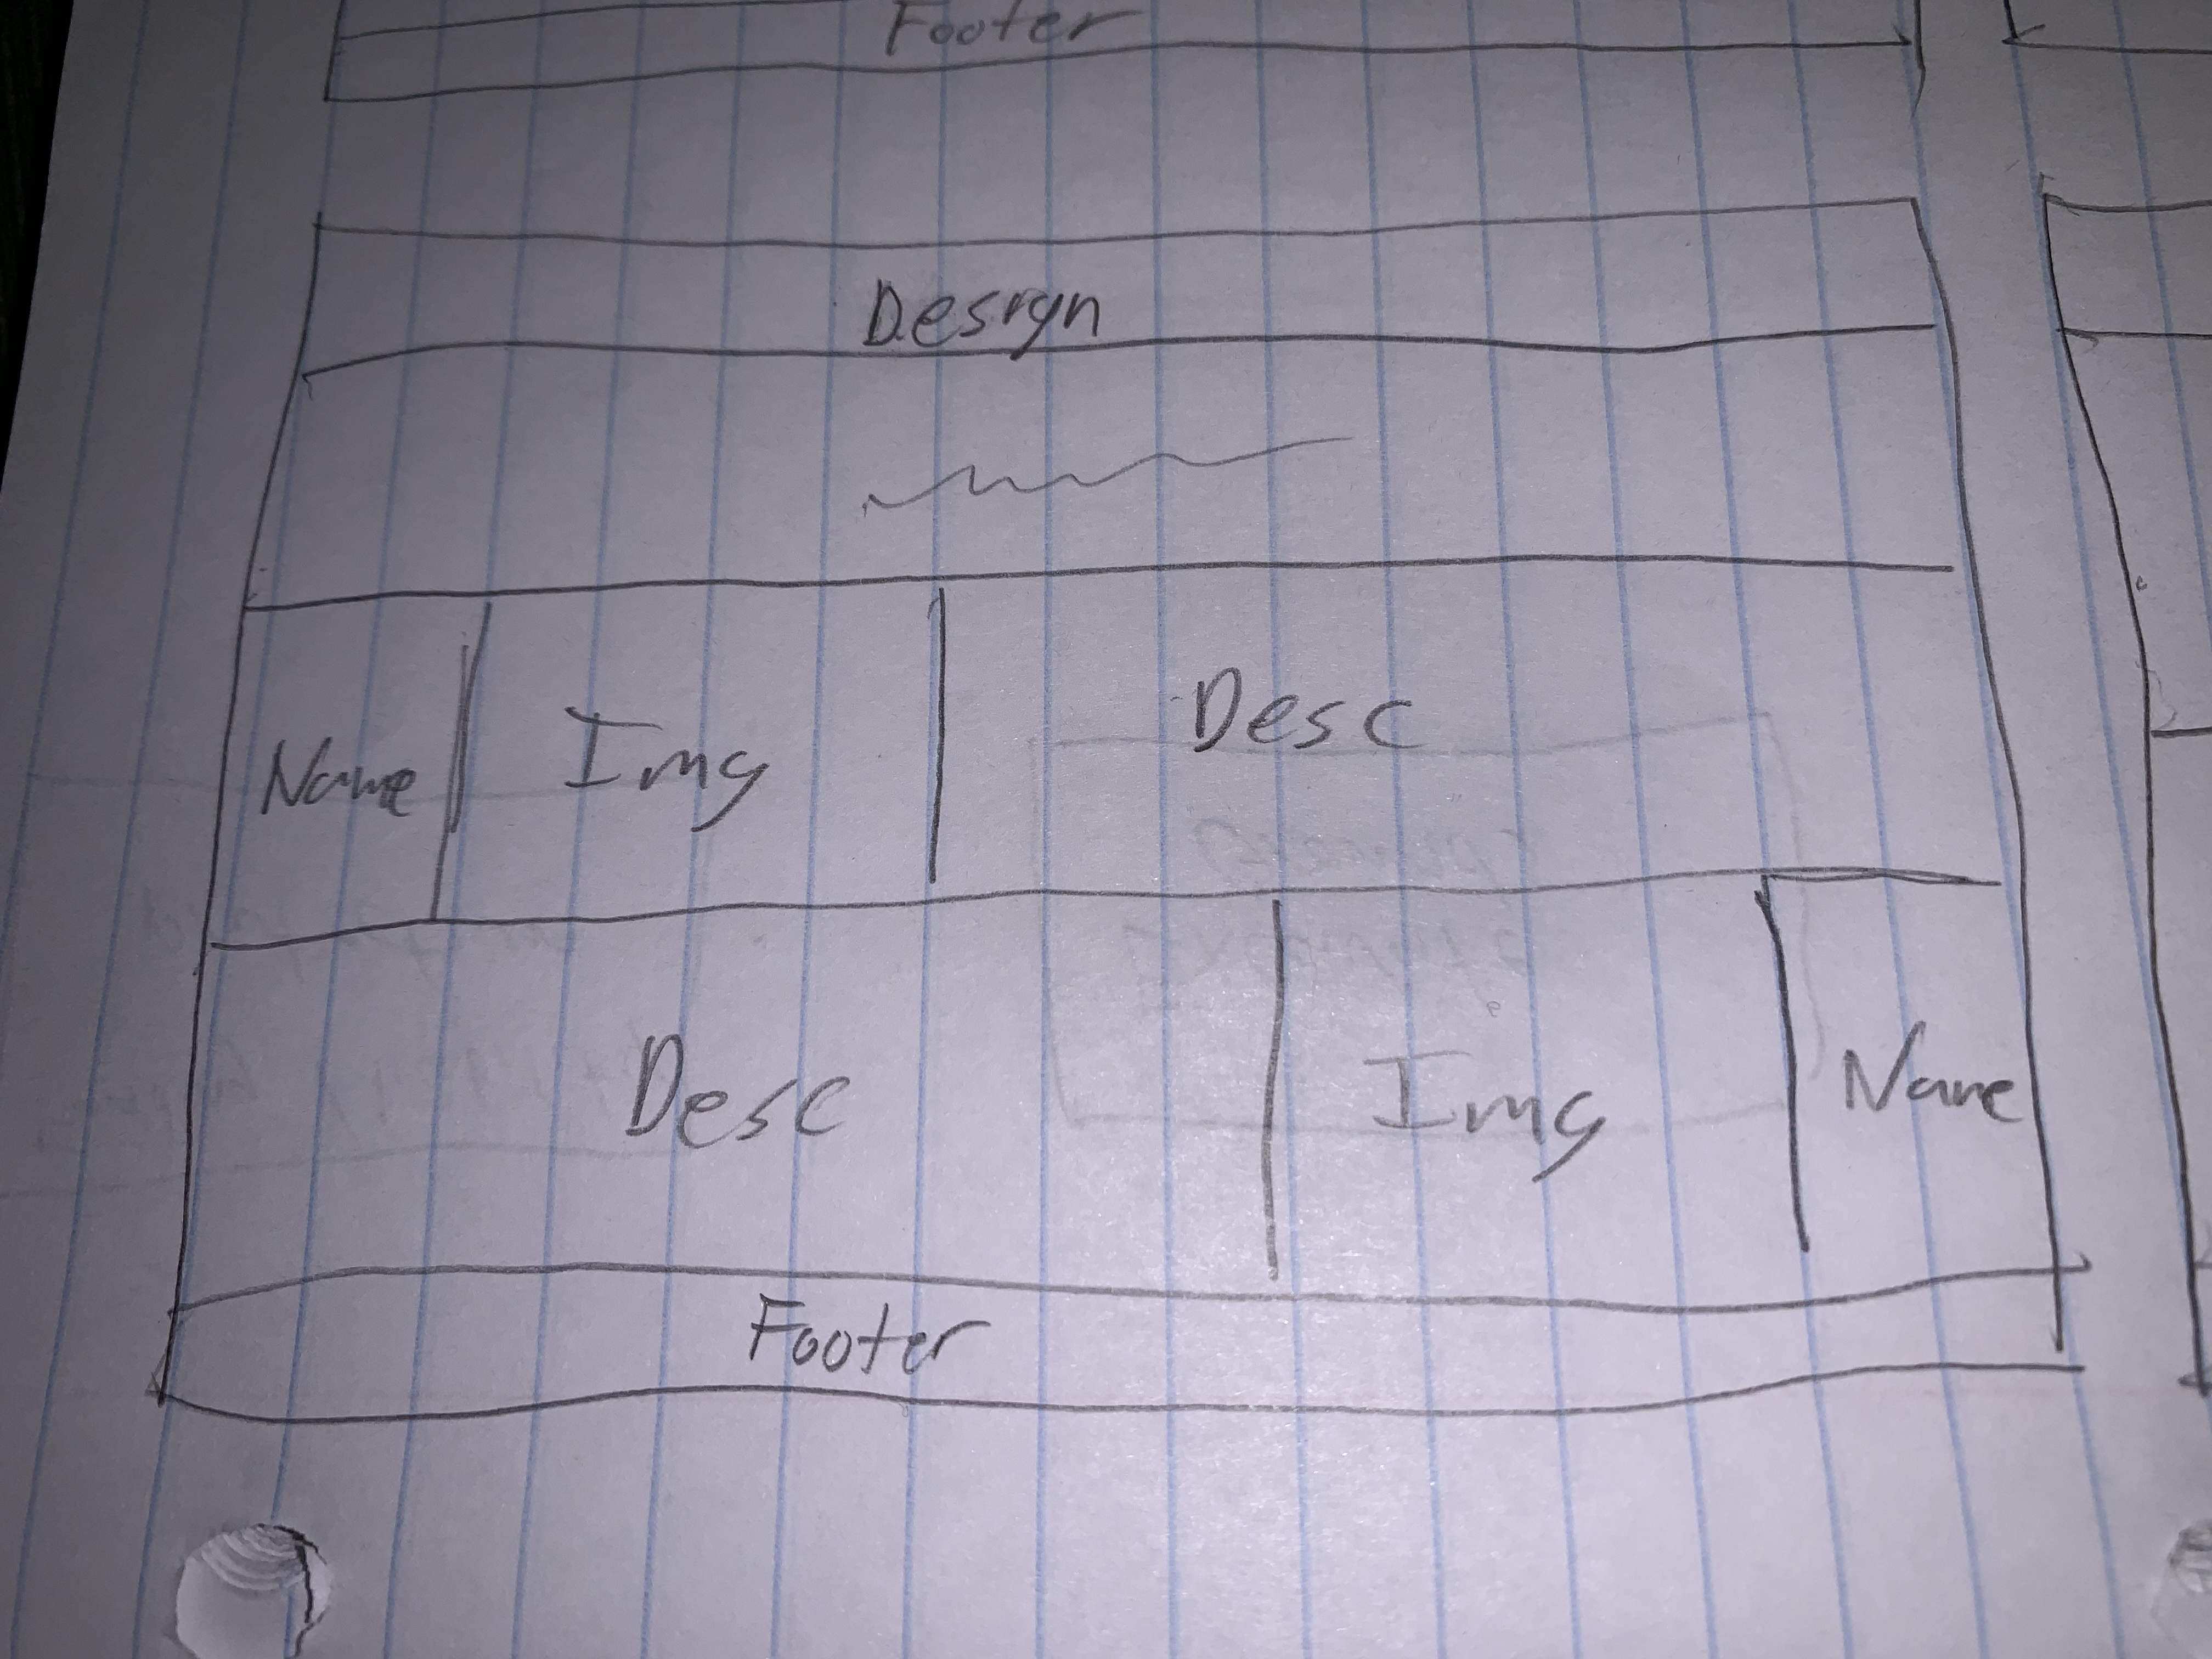 Footer
Design
Name Img Desc
Desc Img Name
Footer